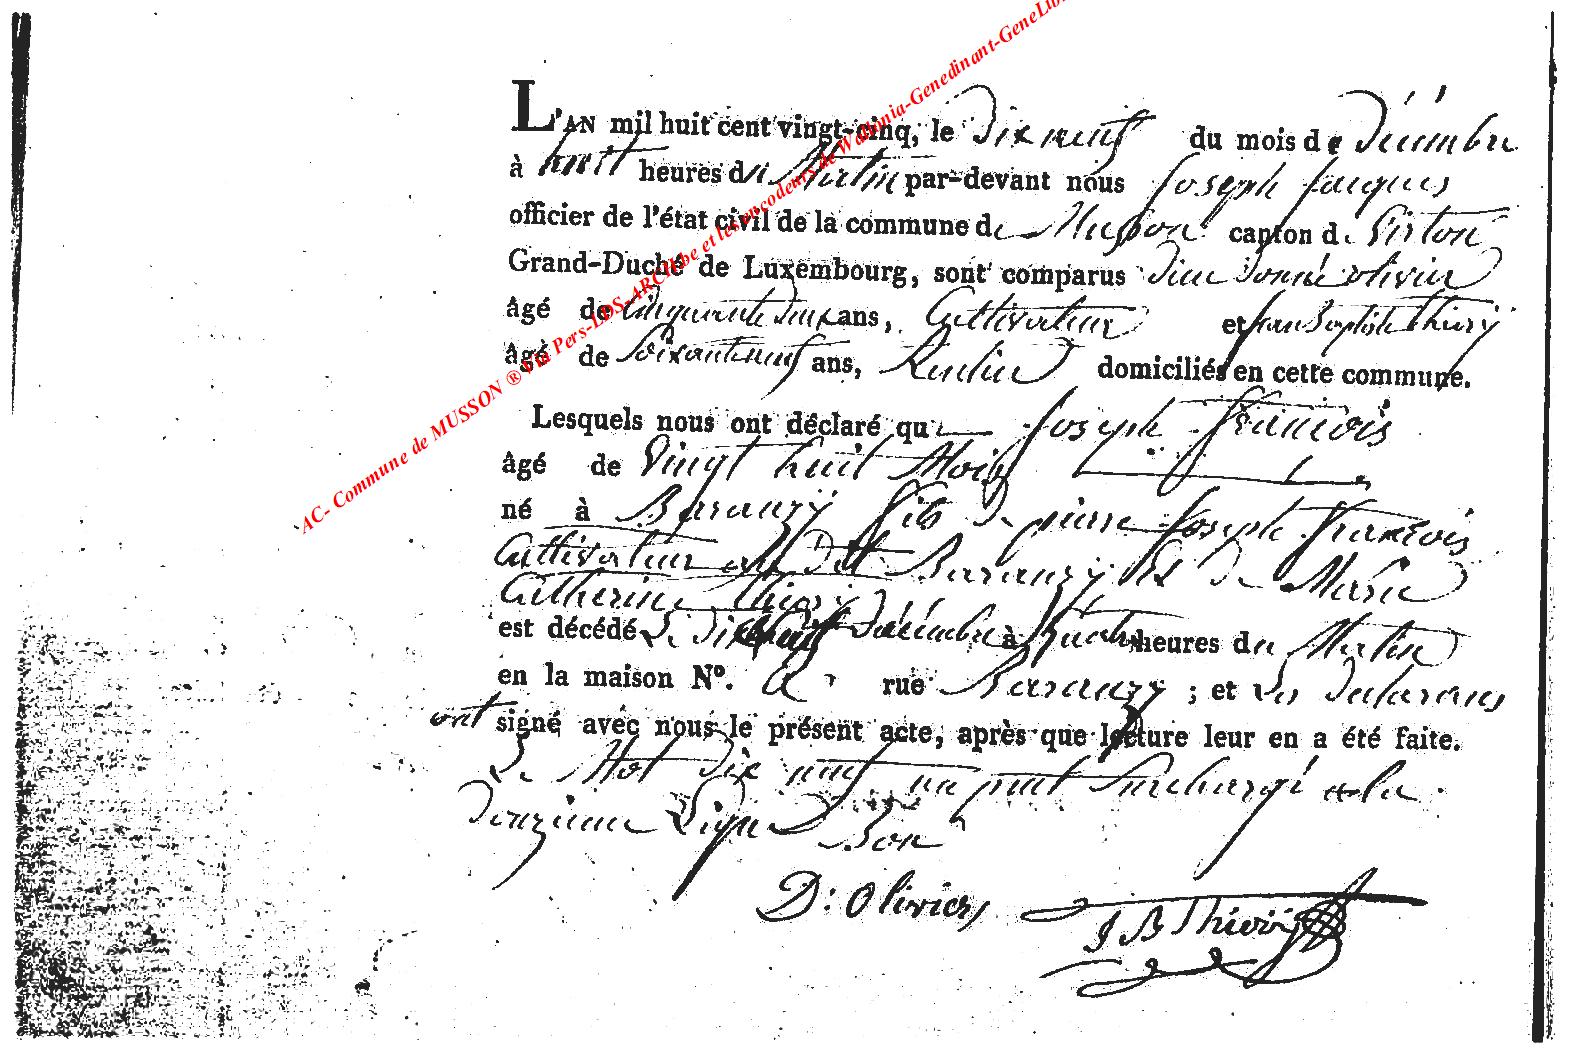 L'AN mil huit cent vingt-cinq, le Dix neuf du mois de Décembre
à huit heures du Matin par-devant nous Joseph Jacques
officier de l'état civil de la commune de Musson canton de Virton
Grand-Duché de Luxembourg, sont comparus Dieu donné olivier
âgé de Cinquante deux ans, Cultivateur et jean Baptiste thiery
âgé de Soixanteneuf ans, Rentier domiciliés en cette commune.
Lesquels nous ont déclaré que Joseph François
âgé de Vingt huit Mois
né à Baranzy fils de pierre Joseph François
Cultivateur au dit Baranzy Et de Marie
Catherine thiery
est décédé Le dix neuf Décembre à heures du Matin
en la maison N°. rue Baranzy ; et Les Déclarans
ont signé avec nous le présent acte, après que lecture leur en a été faite.
Le Mot Dix neuf un peut Surchargé a la
Douzieme Ligne Bon
D: Olivier
J B Thiery
AC- Commune de MUSSON ® Via Pers-LDS-ARCH.be et les encodeurs de Wallonia-Genedinant-GeneLib